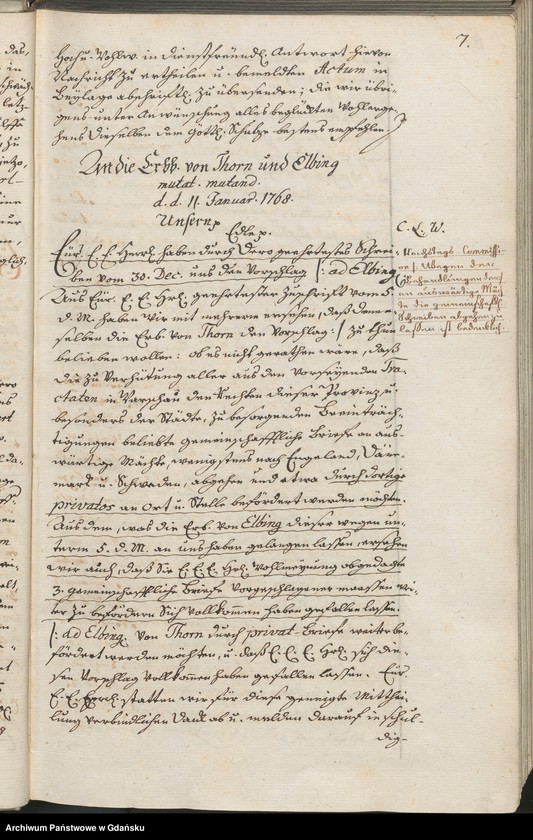 7.
Hochw. Wohlw. in dienstfreundl. Antwort hievon
Nachricht zu ertheilen u. bemeldten Actum in
Beylage abschriftl. zu übersenden; die wir übri-
gens unter Anwünschung alles beglückten Wohlerge-
hens dieselben dem Göttl. Schutze bestens empfehlen.
An die Erbb. von Thorn und Elbing
mutat. mutand.
d. d. 11. Januar. 1768.
Unsern p
Edle p.
Eür. E. E. Herrl. haben durch Dero geehrtestes Schrei-
ben vom 30. Dec. uns den Vorschlag |: ad Elbing
Aus Eür. E. E. Hrl. geehrtester Zuschrift vom 5.
d. M. haben wir mit mehrern ersehen, daß denen-
selben die Erb. von Thorn den Vorschlag :| zu thun
belieben wollen: ob es nicht gerathen wäre, daß
die zu Verhütung aller aus den vorseyenden Tra-
ctaten in Warschau den Rechten dieser Provinz u.
besonders der Städte, zu besorgenden Beeinträch-
tigungen beliebte gemeinschafftliche Briefe an aus-
wärtige Mächte, wenigstens nach Engeland, Däne-
mark u. Schweden, abgehen und etwa durch dortige
privatos an Ort u. Stelle befördert werden möchten.
Aus dem, was die Erb. von Elbing dieser wegen un-
term 5. d. M. an uns haben gelangen lassen, ersehen
wir auch, daß Sie E. E. E. Hrl. Wohlmeynung obgedachte
3. gemeinschafftliche Briefe vorgeschlagener maassen wei-
ter zu befördern Sich vollkomen haben gefallen lassen.
|: ad Elbing. von Thorn durch privat-Briefe weiter be-
fördert werden möchten, u. daß E. E. E. Hrl. sich die-
sen Vorschlag vollkomen haben gefallen lassen. Eür.
E. E. Herrl. statten wir für diese geneigte Mitthei-
lung verbindlichen Dank ab u. melden darauf in schul-
dig-
C. L. W.
Reichstags-Commissi-
on |: Wegen der
Behandlungen durch
an auswärtige Mäch-
te die gemeinschafftl.
Schreiben abgehen zu
lassen ist bedenklich.
Archiwum Państwowe w Gdańsku